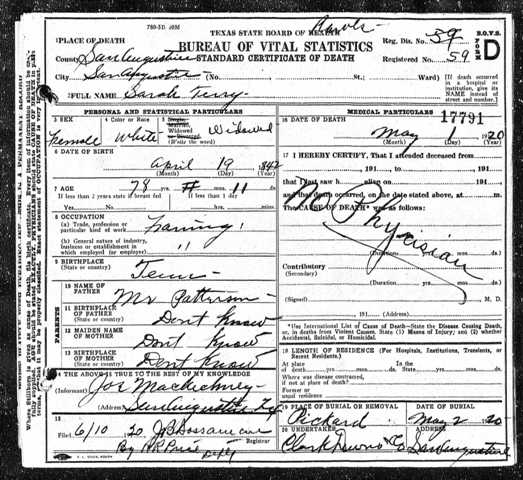 TEXAS STATE BOARD OF HEALTH
BUREAU OF VITAL STATISTICS
STANDARD CERTIFICATE OF DEATH
Reg. Dis. No. 59
Registered No. 59
B.O.V.S.
FORM D
PLACE OF DEATH
County San Augustine
City San Augustine (No. St.; Ward)
[If death occurred in a hospital or institution, give its NAME instead of street and number.]
FULL NAME Sarah Terry
PERSONAL AND STATISTICAL PARTICULARS
3 SEX
Female
4 Color or Race
White
5 Single, Married, Widowed or Divorced (Write the word)
Widowed
6 DATE OF BIRTH
April 19 1842
(Month) (Day) (Year)
7 AGE
78 11
If less than 2 years state if breast fed
If less than 1 day
Yes No hours min.
8 OCCUPATION
(a) Trade, profession or particular kind of work
Farming
(b) General nature of industry, business or establishment in which employed (or employer)
"
9 BIRTHPLACE (State or country)
Tenn
PARENTS
10 NAME OF FATHER
Mr Patterson
11 BIRTHPLACE OF FATHER (State or country)
Dont Know
12 MAIDEN NAME OF MOTHER
Dont Know
13 BIRTHPLACE OF MOTHER (State or country)
Dont Know
14 THE ABOVE IS TRUE TO THE BEST OF MY KNOWLEDGE
(Informant) Joe
(Address) San Augustine Tex
15
Filed 6/10 20
Registrar
By Price Depty
MEDICAL PARTICULARS
17791
16 DATE OF DEATH
May 1 1920
(Month) (Day) (Year)
17 I HEREBY CERTIFY, That I attended deceased from
191 to 191
that I last saw h alive on 191
and that death occurred, on the date stated above, at M.
The CAUSE OF DEATH* was as follows:
No Physician
(Duration) yrs. mos. ds.
Contributory
(Secondary)
(Duration) yrs. mos. ds.
(Signed) M. D.
191 (Address)
*Use International List of Cause of Death—State the Disease Causing Death, or, in deaths from Violent Causes, State (1) Means of Injury; and (2) whether Accidental, Suicidal, or Homicidal.
18 LENGTH OF RESIDENCE (For Hospitals, Institutions, Transients, or Recent Residents.)
At place of death yrs. mos. ds. In the State yrs. mos. ds.
Where was disease contracted, if not at place of death?
Former or usual residence
19 PLACE OF BURIAL OR REMOVAL
Pickard
DATE OF BURIAL
May 2 20
20 UNDERTAKER
Clark Downs Co San Augustine